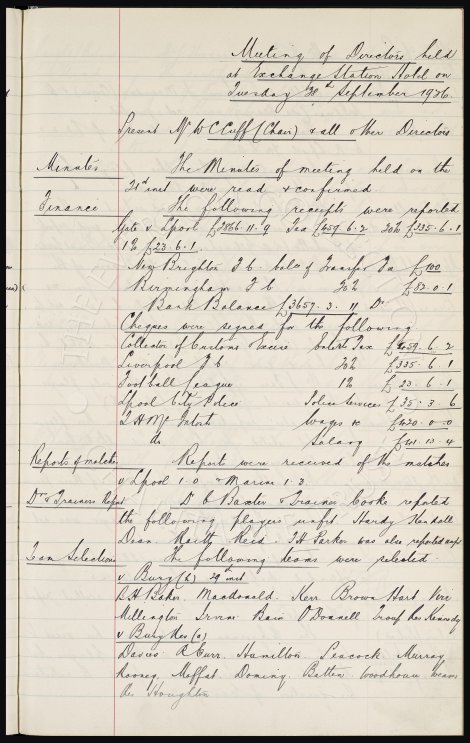 Meeting of Directors held
at Exchange Station Hotel on
Tuesday 28th September 1926.
Present Mr W C Cuff (Chair) & all other Directors
Minutes The Minutes of meeting held on the
21st inst were read & confirmed
Finance The following receipts were reported
Gate v. Lpool £2866.11.9 Tax £459.6.2 20% £335.6.1
1% £23.6.1.
New Brighton F.C. balce of Transfer Fee £100
Birmingham F C 20% £82.0.1
Bank Balance £3657.3.11 Dr
Cheques were signed for the following
Collector of Customs Excise Entert Tax £459.6.2
Liverpool F C 20% £335.6.1
Football League 1% £23.6.1
Lpool City Police Police Services £35.3.6
T. H. McIntosh Wages &c £420.0.0
do Salary £41.13.4
Reports of matches Reports were received of the matches
v Lpool 1.0 & Marine 1.3.
Dr & Trainers Report Dr C Baxter & Trainer Cooke reported
the following players unfit. Hardy Kendall
Dean. Raitt Reid. J H Parker was also reported unfit
Team Selection The following teams were selected
v Bury (h) 29th inst
B H Baker. Macdonald. Kerr Brown Hart Virr
Millington Irvine Bain O'Donnell Troup Res Kennedy
v Bury Res (a)
Davies R Curr. Hamilton. Peacock. Murray
Rooney. Moffat. Dominy. Batten Woodhouse Weaver
Res Houghton